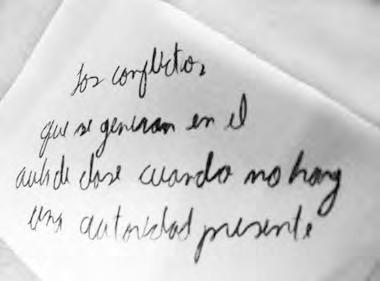 los conflictos
que se generan en el
aula de clase cuando no hay
una autoridad presente